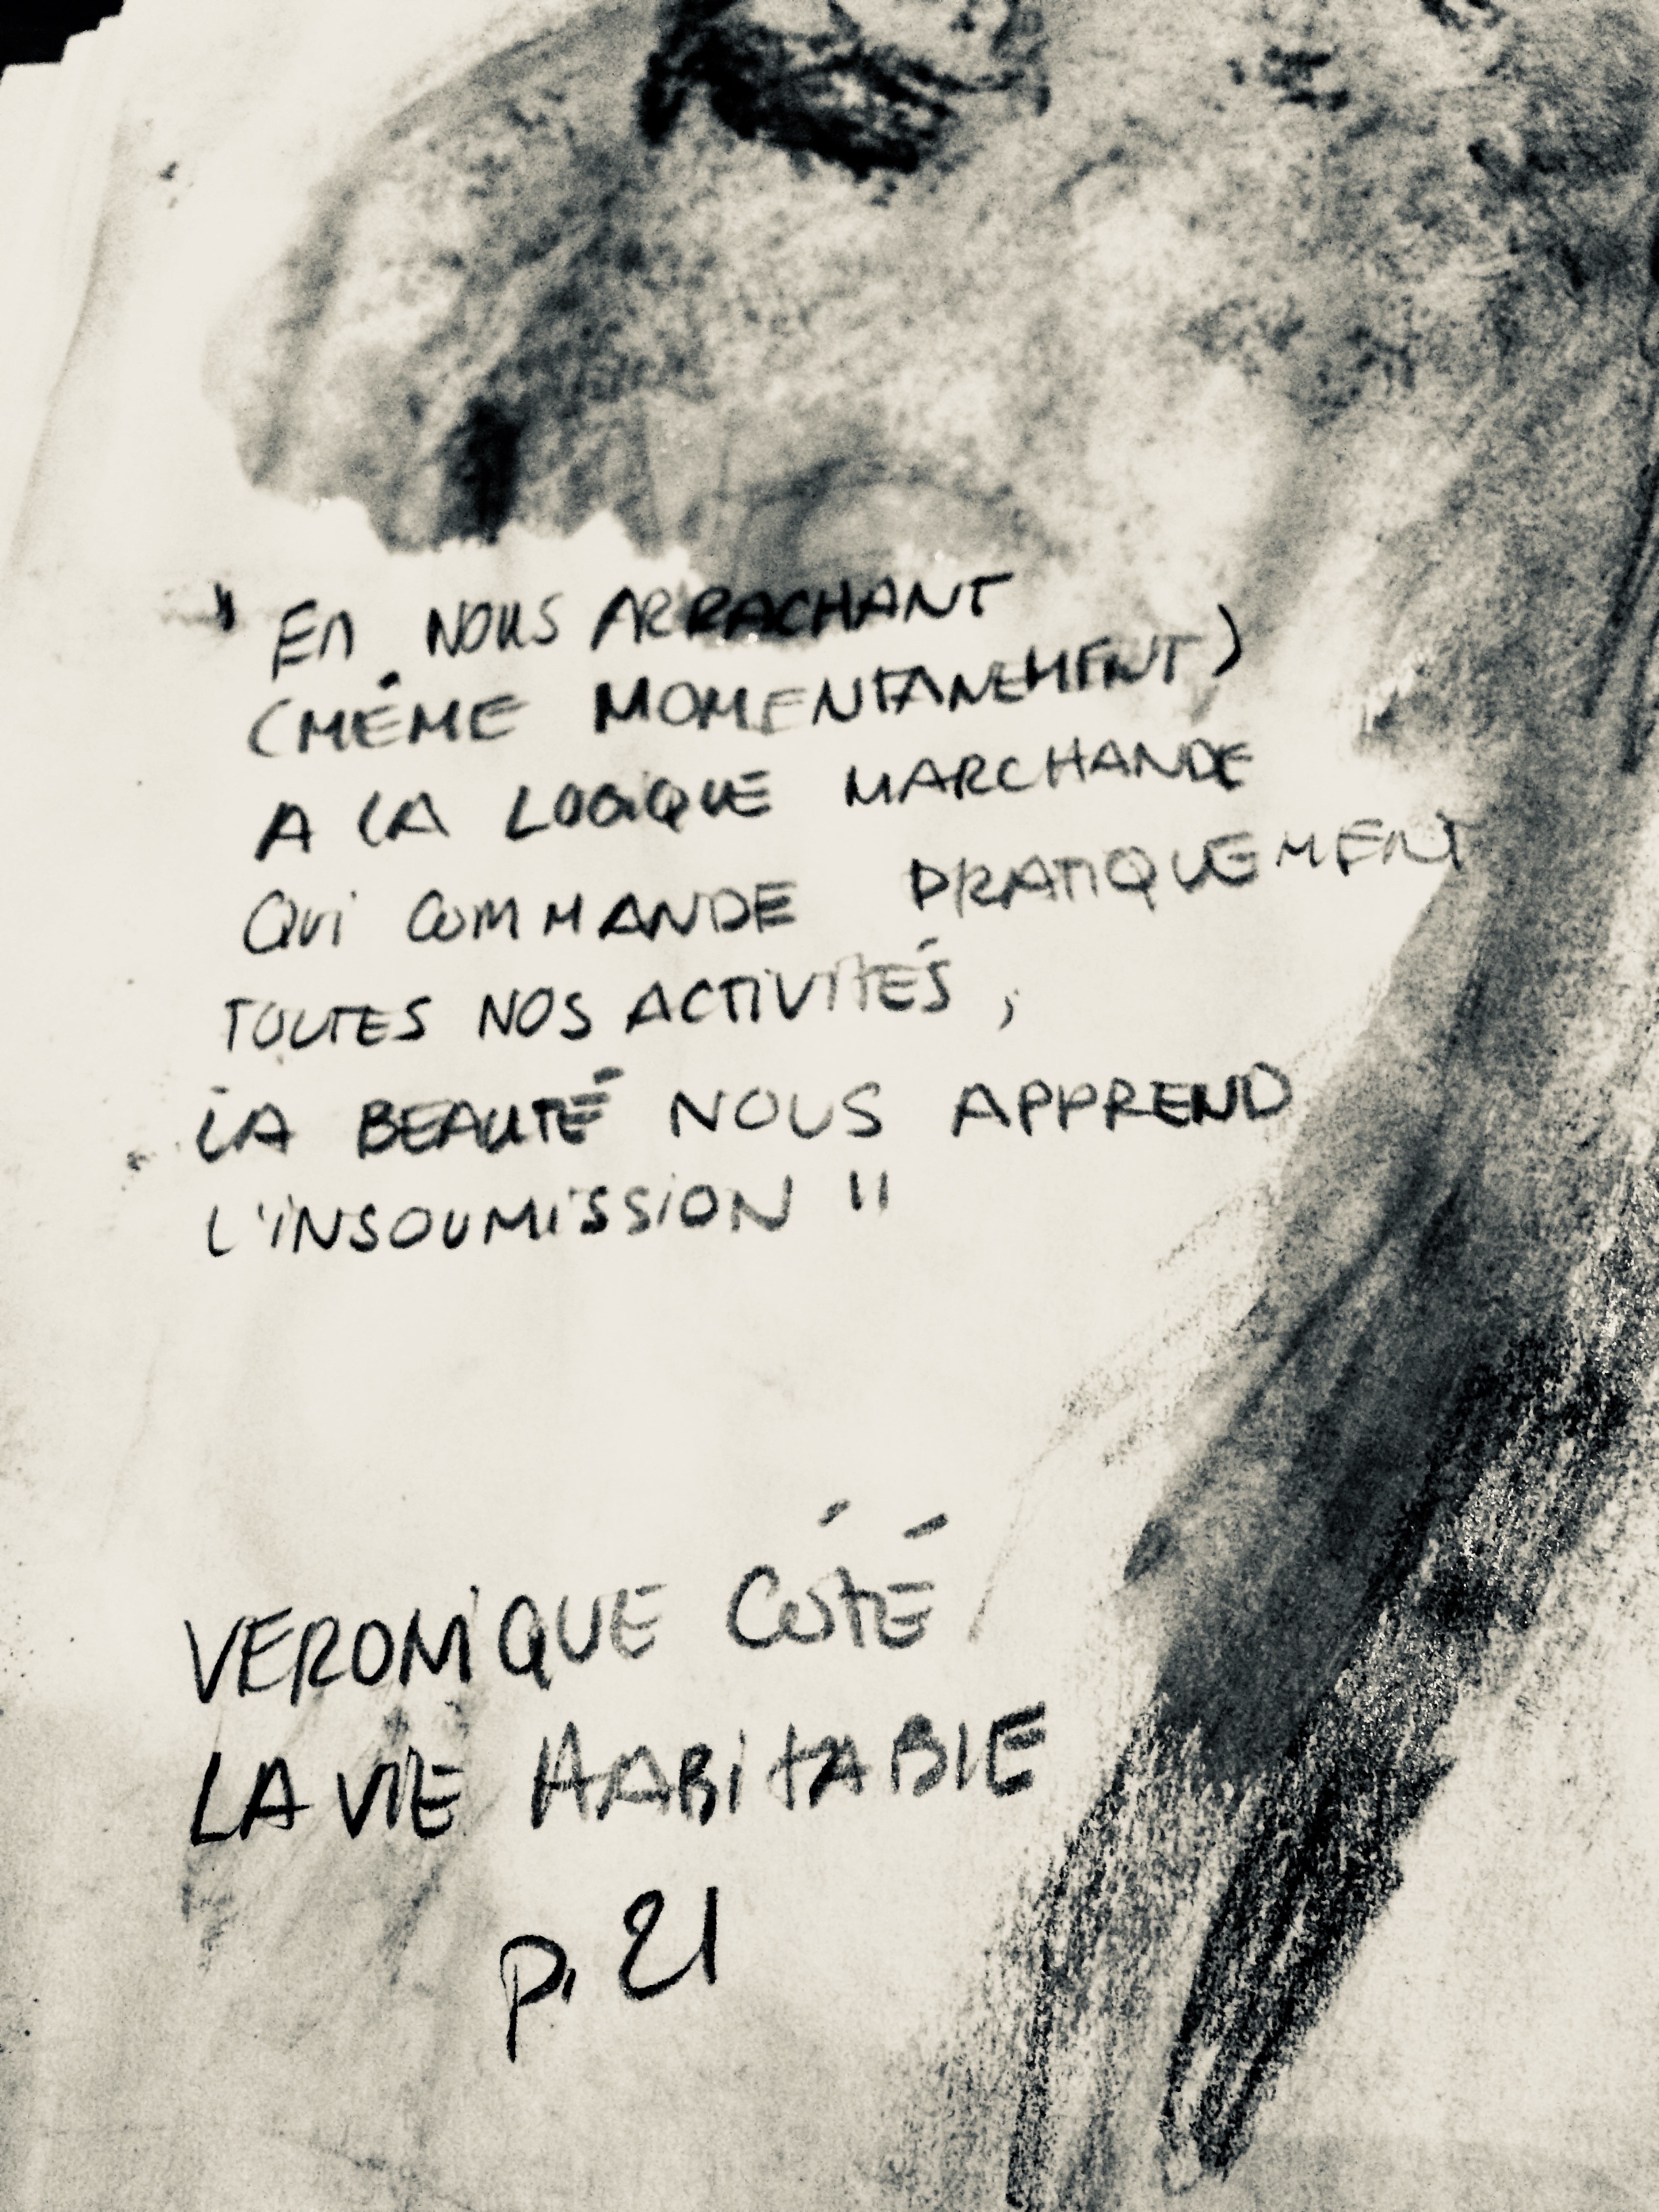 " En NOUS ARRACHANT
(MÊME MOMENTANEMENT)
A LA LOGIQUE MARCHANDE
QUI COMMANDE PRATIQUEMENT
TOUTES NOS ACTIVITÉS,
LA BEAUTÉ NOUS APPREND
L'INSOUMISSION "
VERONIQUE CÔTÉ
LA VIE HABITABLE
p. 21